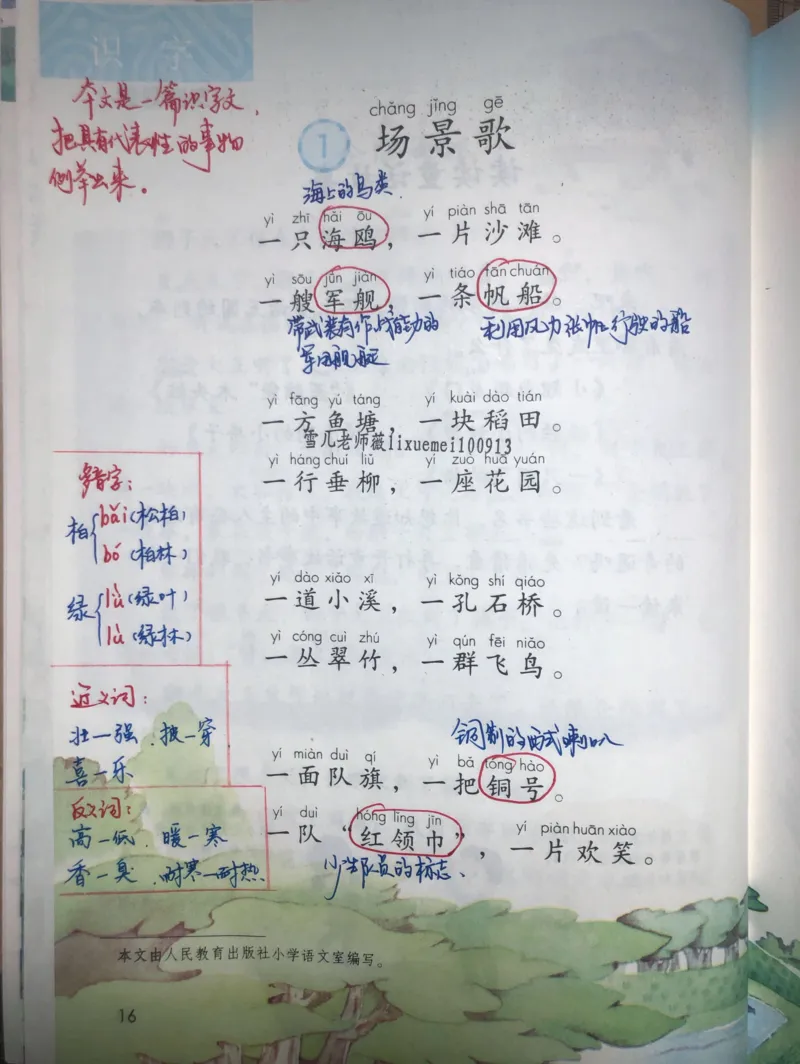 识字
本文是一篇识字文,
把具有代表性的事物
例举出来。
chǎng jǐng gē
1 场景歌
海上的鸟类
yì zhī hǎi ōu yí piàn shā tān
一只海鸥，一片沙滩。
yì sōu jūn jiàn yì tiáo fān chuán
一艘军舰，一条帆船。
带武装有作战能力的 利用风力张帆行驶的船
军用舰艇
yì fāng yú táng yí kuài dào tián
一方鱼塘，一块稻田。
雪儿老师薇lixuemei100913
yì háng chuí liǔ yí zuò huā yuán
一行垂柳，一座花园。
多音字：
柏 bǎi(松柏)
bó(柏林)
绿 lǜ(绿叶)
lù(绿林)
yí dào xiǎo xī yì kǒng shí qiáo
一道小溪，一孔石桥。
yì cóng cuì zhú yì qún fēi niǎo
一丛翠竹，一群飞鸟。
近义词：
壮—强 披—穿
喜—乐
铜制的西式喇叭
yí miàn duì qí yì bǎ tóng hào
一面队旗，一把铜号。
反义词：
高—低 暖—寒
香—臭 耐寒—耐热
yí duì hóng lǐng jīn yí piàn huān xiào
一队“红领巾”，一片欢笑。
少先队员的标志、
本文由人民教育出版社小学语文室编写。
16